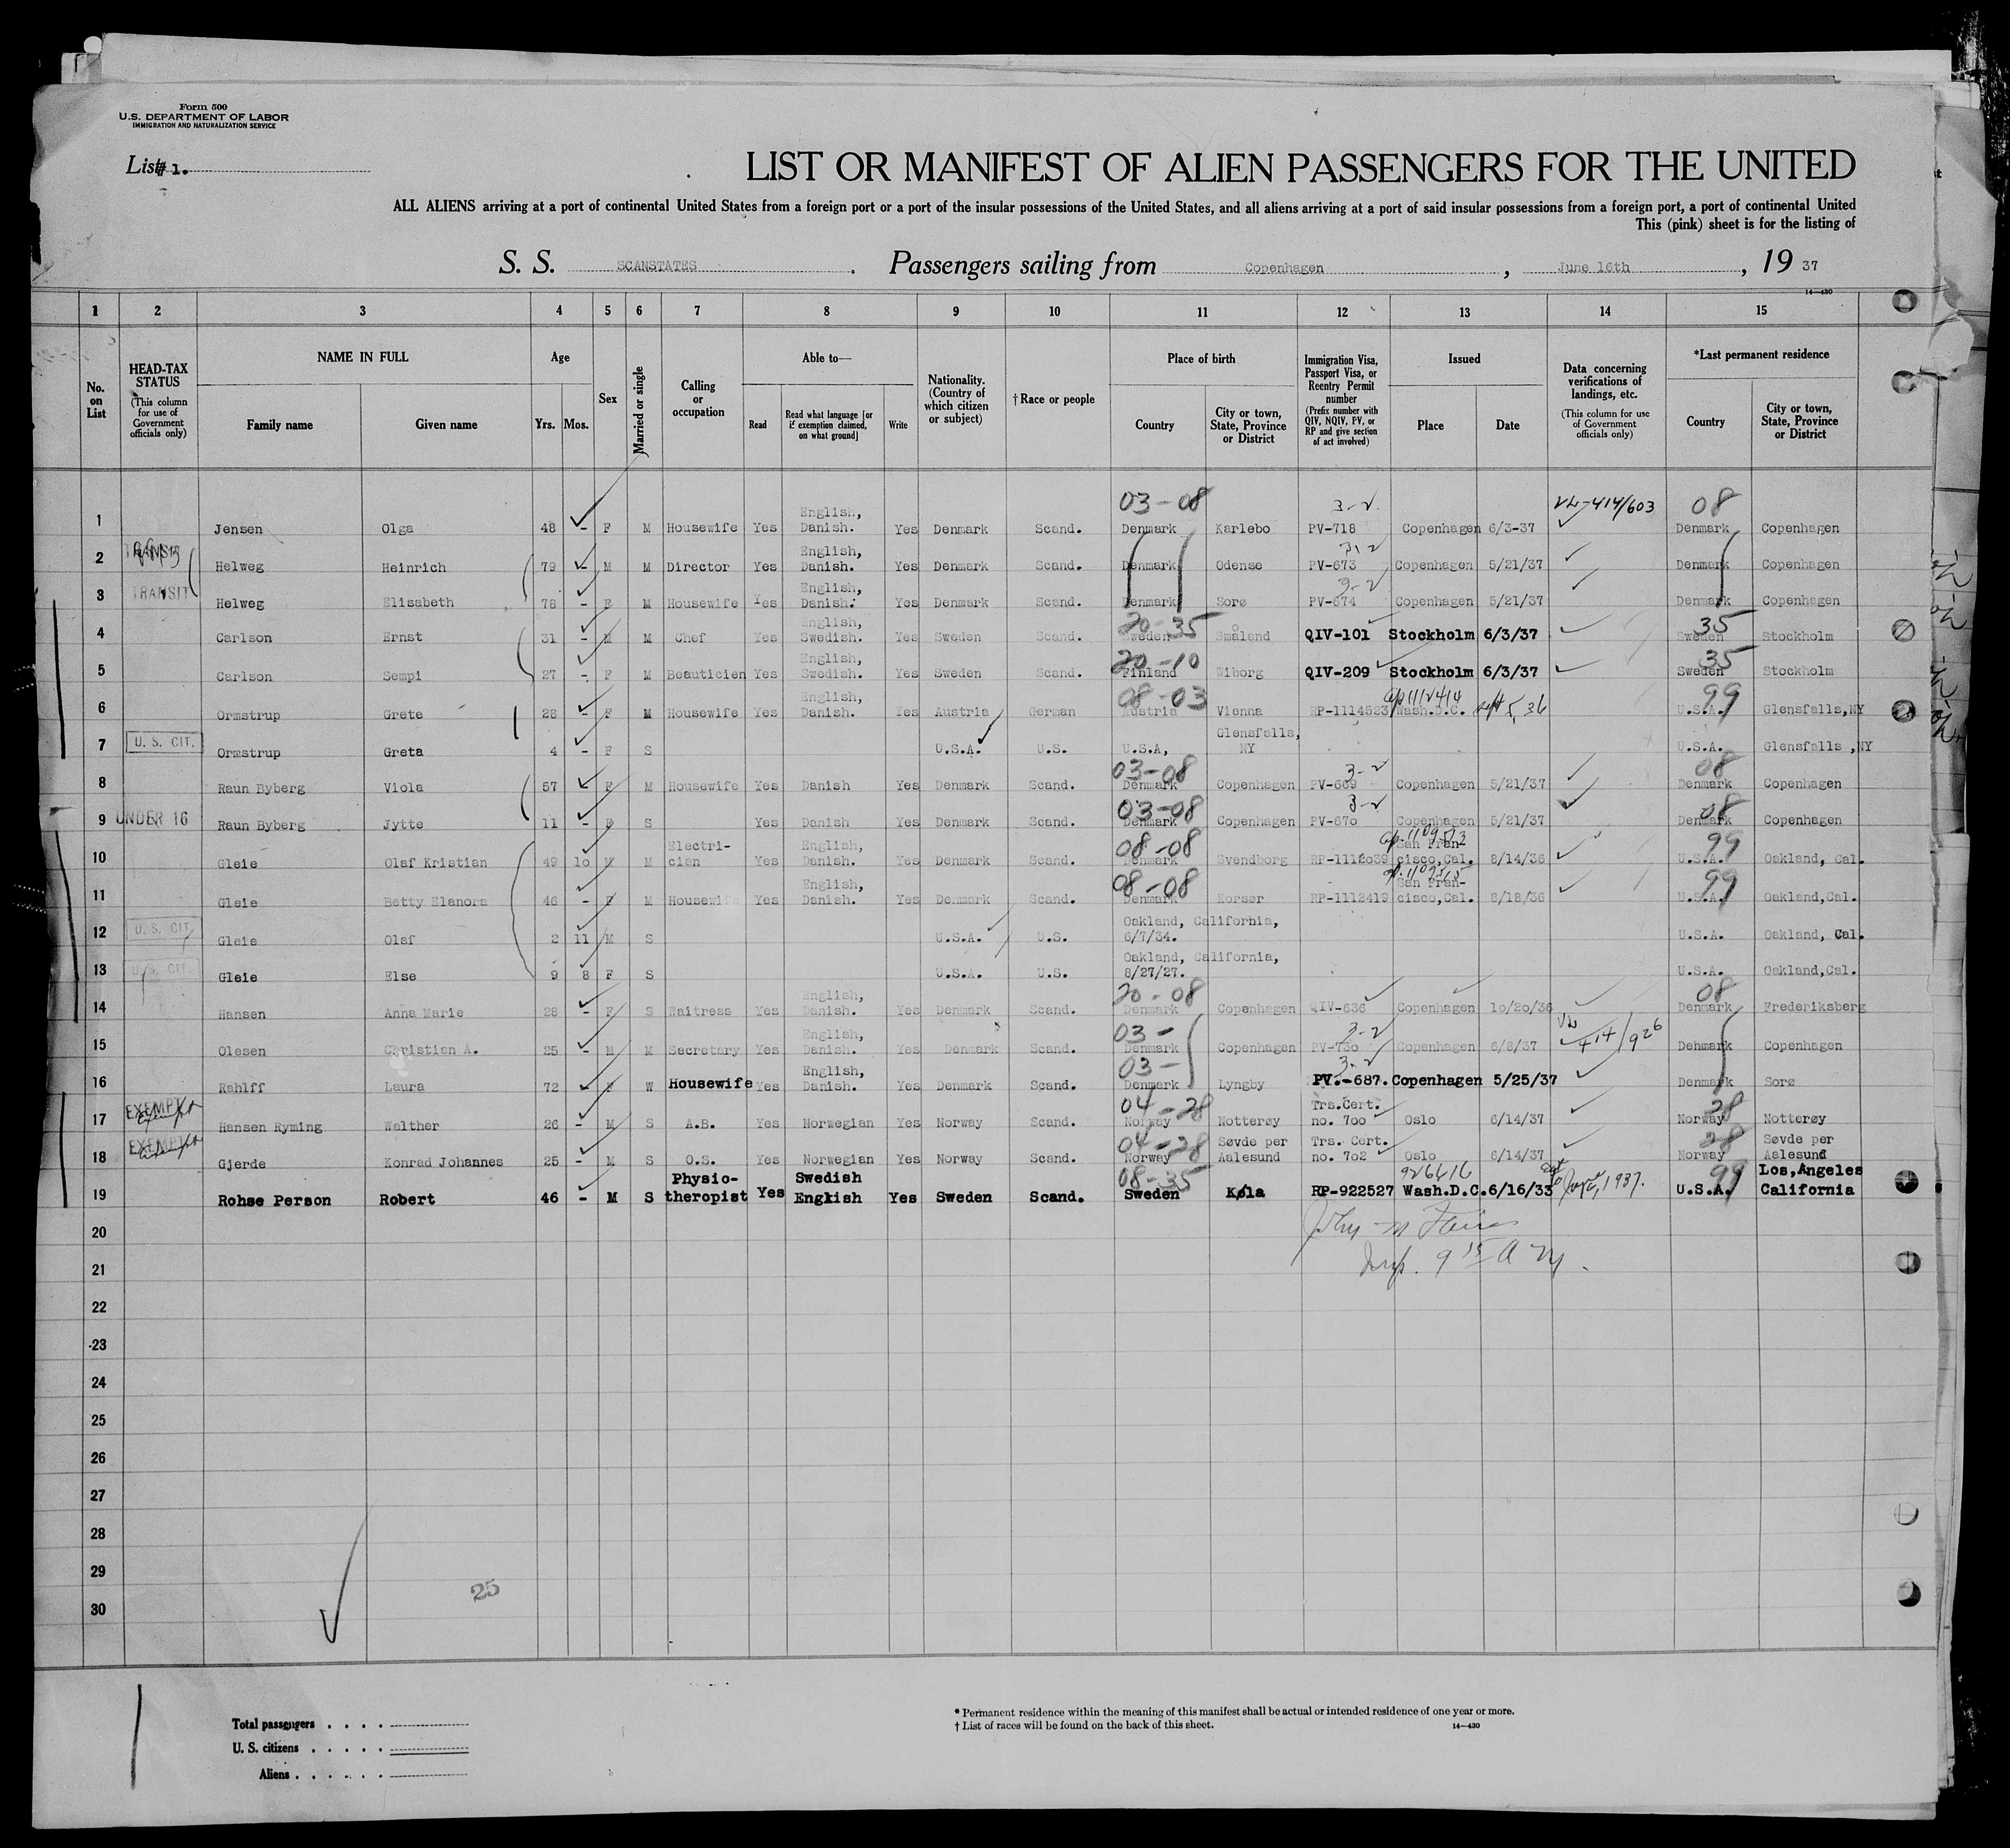 Form 500
U.S. DEPARTMENT OF LABOR
IMMIGRATION AND NATURALIZATION SERVICE
List # 1.
LIST OR MANIFEST OF ALIEN PASSENGERS FOR THE UNITED
ALL ALIENS arriving at a port of continental United States from a foreign port or a port of the insular possessions of the United States, and all aliens arriving at a port of said insular possessions from a foreign port, a port of continental United
This (pink) sheet is for the listing of
S. S. SCANSTATES . Passengers sailing from Copenhagen , June 16th , 19 37
14—430
1 2 3 4 5 6 7 8 9 10 11 12 13 14 15
No. on List
HEAD-TAX STATUS (This column for use of Government officials only)
NAME IN FULL Family name Given name
Age Yrs. Mos.
Sex
Married or single
Calling or occupation
Able to— Read Read what language [or if exemption claimed, on what ground] Write
Nationality. (Country of which citizen or subject)
† Race or people
Place of birth Country City or town, State, Province or District
Immigration Visa, Passport Visa, or Reentry Permit number (Prefix number with QIV, NQIV, PV, or RP and give section of act involved)
Issued Place Date
Data concerning verifications of landings, etc. (This column for use of Government officials only)
*Last permanent residence Country City or town, State, Province or District
03-08 3-2 414/603 08
1 Jensen Olga 48 - F M Housewife Yes English, Danish. Yes Denmark Scand. Denmark Karlebo PV-718 Copenhagen 6/3-37 Denmark Copenhagen
3-2
2 TRANSIT Helweg Heinrich 79 - M M Director Yes English, Danish. Yes Denmark Scand. Denmark Odense PV-673 Copenhagen 5/21/37 Denmark Copenhagen
3-2
3 TRANSIT Helweg Elisabeth 78 - F M Housewife Yes English, Danish. Yes Denmark Scand. Denmark Sorø PV-674 Copenhagen 5/21/37 Denmark Copenhagen
20-35 35
4 Carlson Ernst 31 - M M Chef Yes English, Swedish. Yes Sweden Scand. Sweden Småland QIV-101 Stockholm 6/3/37 Sweden Stockholm
20-10 35
5 Carlson Sempi 27 - F M Beauticien Yes English, Swedish. Yes Sweden Scand. Finland Wiborg QIV-209 Stockholm 6/3/37 Sweden Stockholm
08-03 99
6 Ormstrup Grete 28 - F M Housewife Yes English, Danish. Yes Austria German Austria Vienna RP-1114523 Wash.D.C. Sept 5, 36 U.S.A. Glensfalls,NY
7 U. S. CIT. Ormstrup Greta 4 - F S U.S.A. U.S. U.S.A, Glensfalls, NY U.S.A. Glensfalls ,NY
03-08 3-2 08
8 Raun Byberg Viola 57 - F M Housewife Yes Danish Yes Denmark Scand. Denmark Copenhagen PV-669 Copenhagen 5/21/37 Denmark Copenhagen
03-08 3-2 08
9 UNDER 16 Raun Byberg Jytte 11 - F S Yes Danish Yes Denmark Scand. Denmark Copenhagen PV-670 Copenhagen 5/21/37 Denmark Copenhagen
08-08 99
10 Gleie Olaf Kristian 49 10 M M Electri-cian Yes English, Danish. Yes Denmark Scand. Denmark Svendborg RP-1112039 San Fran-cisco,Cal. 8/14/36 U.S.A. Oakland, Cal.
08-08 99
11 Gleie Betty Elanora 46 - F M Housewife Yes English, Danish. Yes Denmark Scand. Denmark Korsør RP-1112419 San Fran-cisco,Cal. 8/18/36 U.S.A. Oakland,Cal.
12 U. S. CIT. Gleie Olaf 2 11 M S U.S.A. U.S. Oakland, California, 6/7/34. U.S.A. Oakland, Cal.
13 U. S. CIT. Gleie Else 9 8 F S U.S.A. U.S. Oakland, California, 8/27/27. U.S.A. Oakland,Cal.
20-08 08
14 Hansen Anna Marie 28 - F S Waitress Yes English, Danish. Yes Denmark Scand. Denmark Copenhagen QIV-636 Copenhagen 10/20/36 Denmark Frederiksberg
03- 3-2 414/926
15 Olesen Christian A. 25 - M M Secretary Yes English, Danish. Yes Denmark Scand. Denmark Copenhagen PV-730 Copenhagen 6/8/37 Denmark Copenhagen
03- 3-2
16 Rahlff Laura 72 - F W Housewife Yes English, Danish. Yes Denmark Scand. Denmark Lyngby PV.-687. Copenhagen 5/25/37 Denmark Sorø
04-28 28
17 EXEMPT Exempt Hansen Ryming Walther 26 - M S A.B. Yes Norwegian Yes Norway Scand. Norway Notterøy Trs.Cert. no. 700 Oslo 6/14/37 Norway Notterøy
04-28 28
18 EXEMPT Exempt Gjerde Konrad Johannes 25 - M S O.S. Yes Norwegian Yes Norway Scand. Norway Søvde per Aalesund Trs. Cert. no. 702 Oslo 6/14/37 Norway Søvde per Aalesund
08-35 926616 99
19 Rohse Person Robert 46 - M S Physio-theropist Yes Swedish English Yes Sweden Scand. Sweden Køla RP-922527 Wash.D.C. 6/16/33 1937. U.S.A. Los,Angeles California
20
21 Insp. 9 15 A M.
22
23
24
25
26
27
28
29
30
25
Total passengers
U. S. citizens
Aliens
* Permanent residence within the meaning of this manifest shall be actual or intended residence of one year or more.
† List of races will be found on the back of this sheet. 14—430